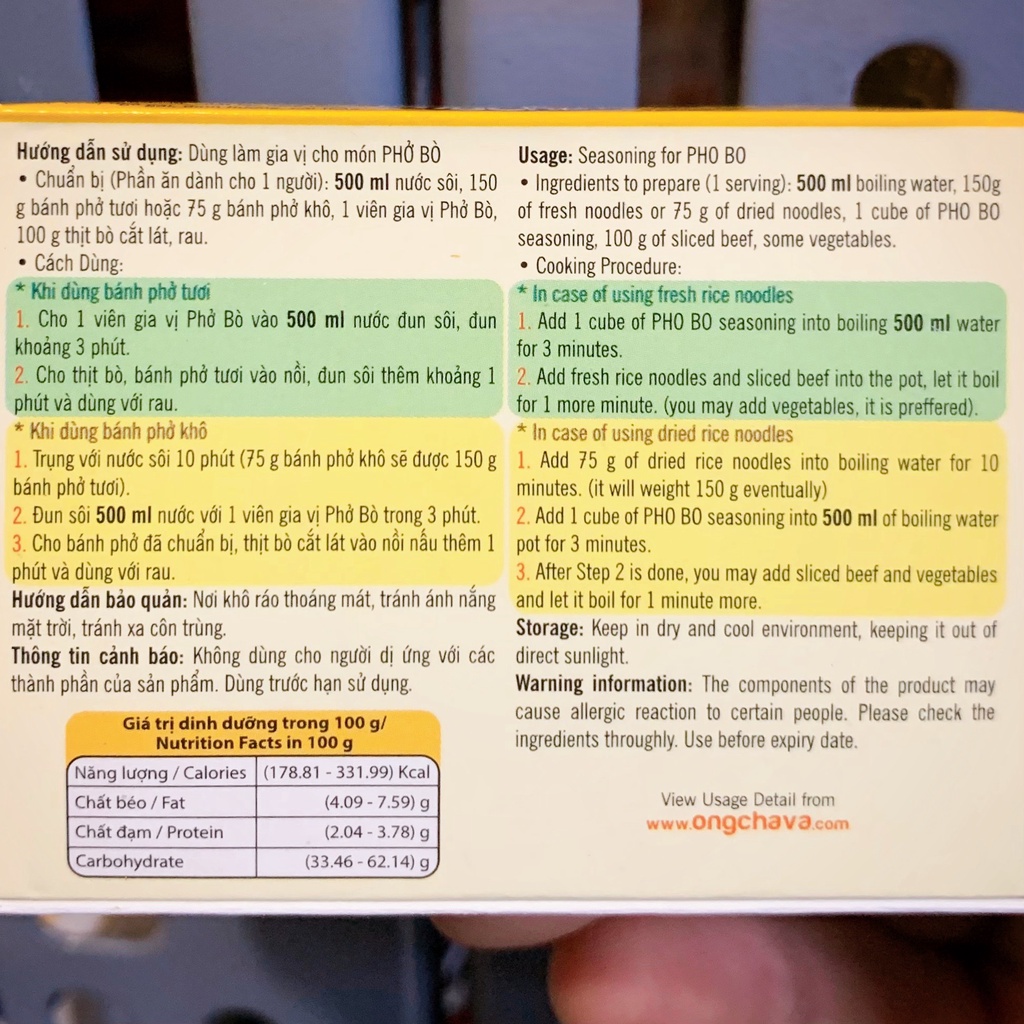 Hướng dẫn sử dụng: Dùng làm gia vị cho món PHỞ BÒ
• Chuẩn bị (Phần ăn dành cho 1 người): 500 ml nước sôi, 150
g bánh phở tươi hoặc 75 g bánh phở khô, 1 viên gia vị Phở Bò,
100 g thịt bò cắt lát, rau.
• Cách Dùng:
* Khi dùng bánh phở tươi
1. Cho 1 viên gia vị Phở Bò vào 500 ml nước đun sôi, đun
khoảng 3 phút.
2. Cho thịt bò, bánh phở tươi vào nồi, đun sôi thêm khoảng 1
phút và dùng với rau.
* Khi dùng bánh phở khô
1. Trụng với nước sôi 10 phút (75 g bánh phở khô sẽ được 150 g
bánh phở tươi).
2. Đun sôi 500 ml nước với 1 viên gia vị Phở Bò trong 3 phút.
3. Cho bánh phở đã chuẩn bị, thịt bò cắt lát vào nồi nấu thêm 1
phút và dùng với rau.
Hướng dẫn bảo quản: Nơi khô ráo thoáng mát, tránh ánh nắng
mặt trời, tránh xa côn trùng.
Thông tin cảnh báo: Không dùng cho người dị ứng với các
thành phần của sản phẩm. Dùng trước hạn sử dụng.
Giá trị dinh dưỡng trong 100 g/
Nutrition Facts in 100 g
Năng lượng / Calories (178.81 - 331.99) Kcal
Chất béo / Fat (4.09 - 7.59) g
Chất đạm / Protein (2.04 - 3.78) g
Carbohydrate (33.46 - 62.14) g
Usage: Seasoning for PHO BO
• Ingredients to prepare (1 serving): 500 ml boiling water, 150g
of fresh noodles or 75 g of dried noodles, 1 cube of PHO BO
seasoning, 100 g of sliced beef, some vegetables.
• Cooking Procedure:
* In case of using fresh rice noodles
1. Add 1 cube of PHO BO seasoning into boiling 500 ml water
for 3 minutes.
2. Add fresh rice noodles and sliced beef into the pot, let it boil
for 1 more minute. (you may add vegetables, it is preffered).
* In case of using dried rice noodles
1. Add 75 g of dried rice noodles into boiling water for 10
minutes. (it will weight 150 g eventually)
2. Add 1 cube of PHO BO seasoning into 500 ml of boiling water
pot for 3 minutes.
3. After Step 2 is done, you may add sliced beef and vegetables
and let it boil for 1 minute more.
Storage: Keep in dry and cool environment, keeping it out of
direct sunlight.
Warning information: The components of the product may
cause allergic reaction to certain people. Please check the
ingredients throughly. Use before expiry date.
View Usage Detail from
www.ongchava.com